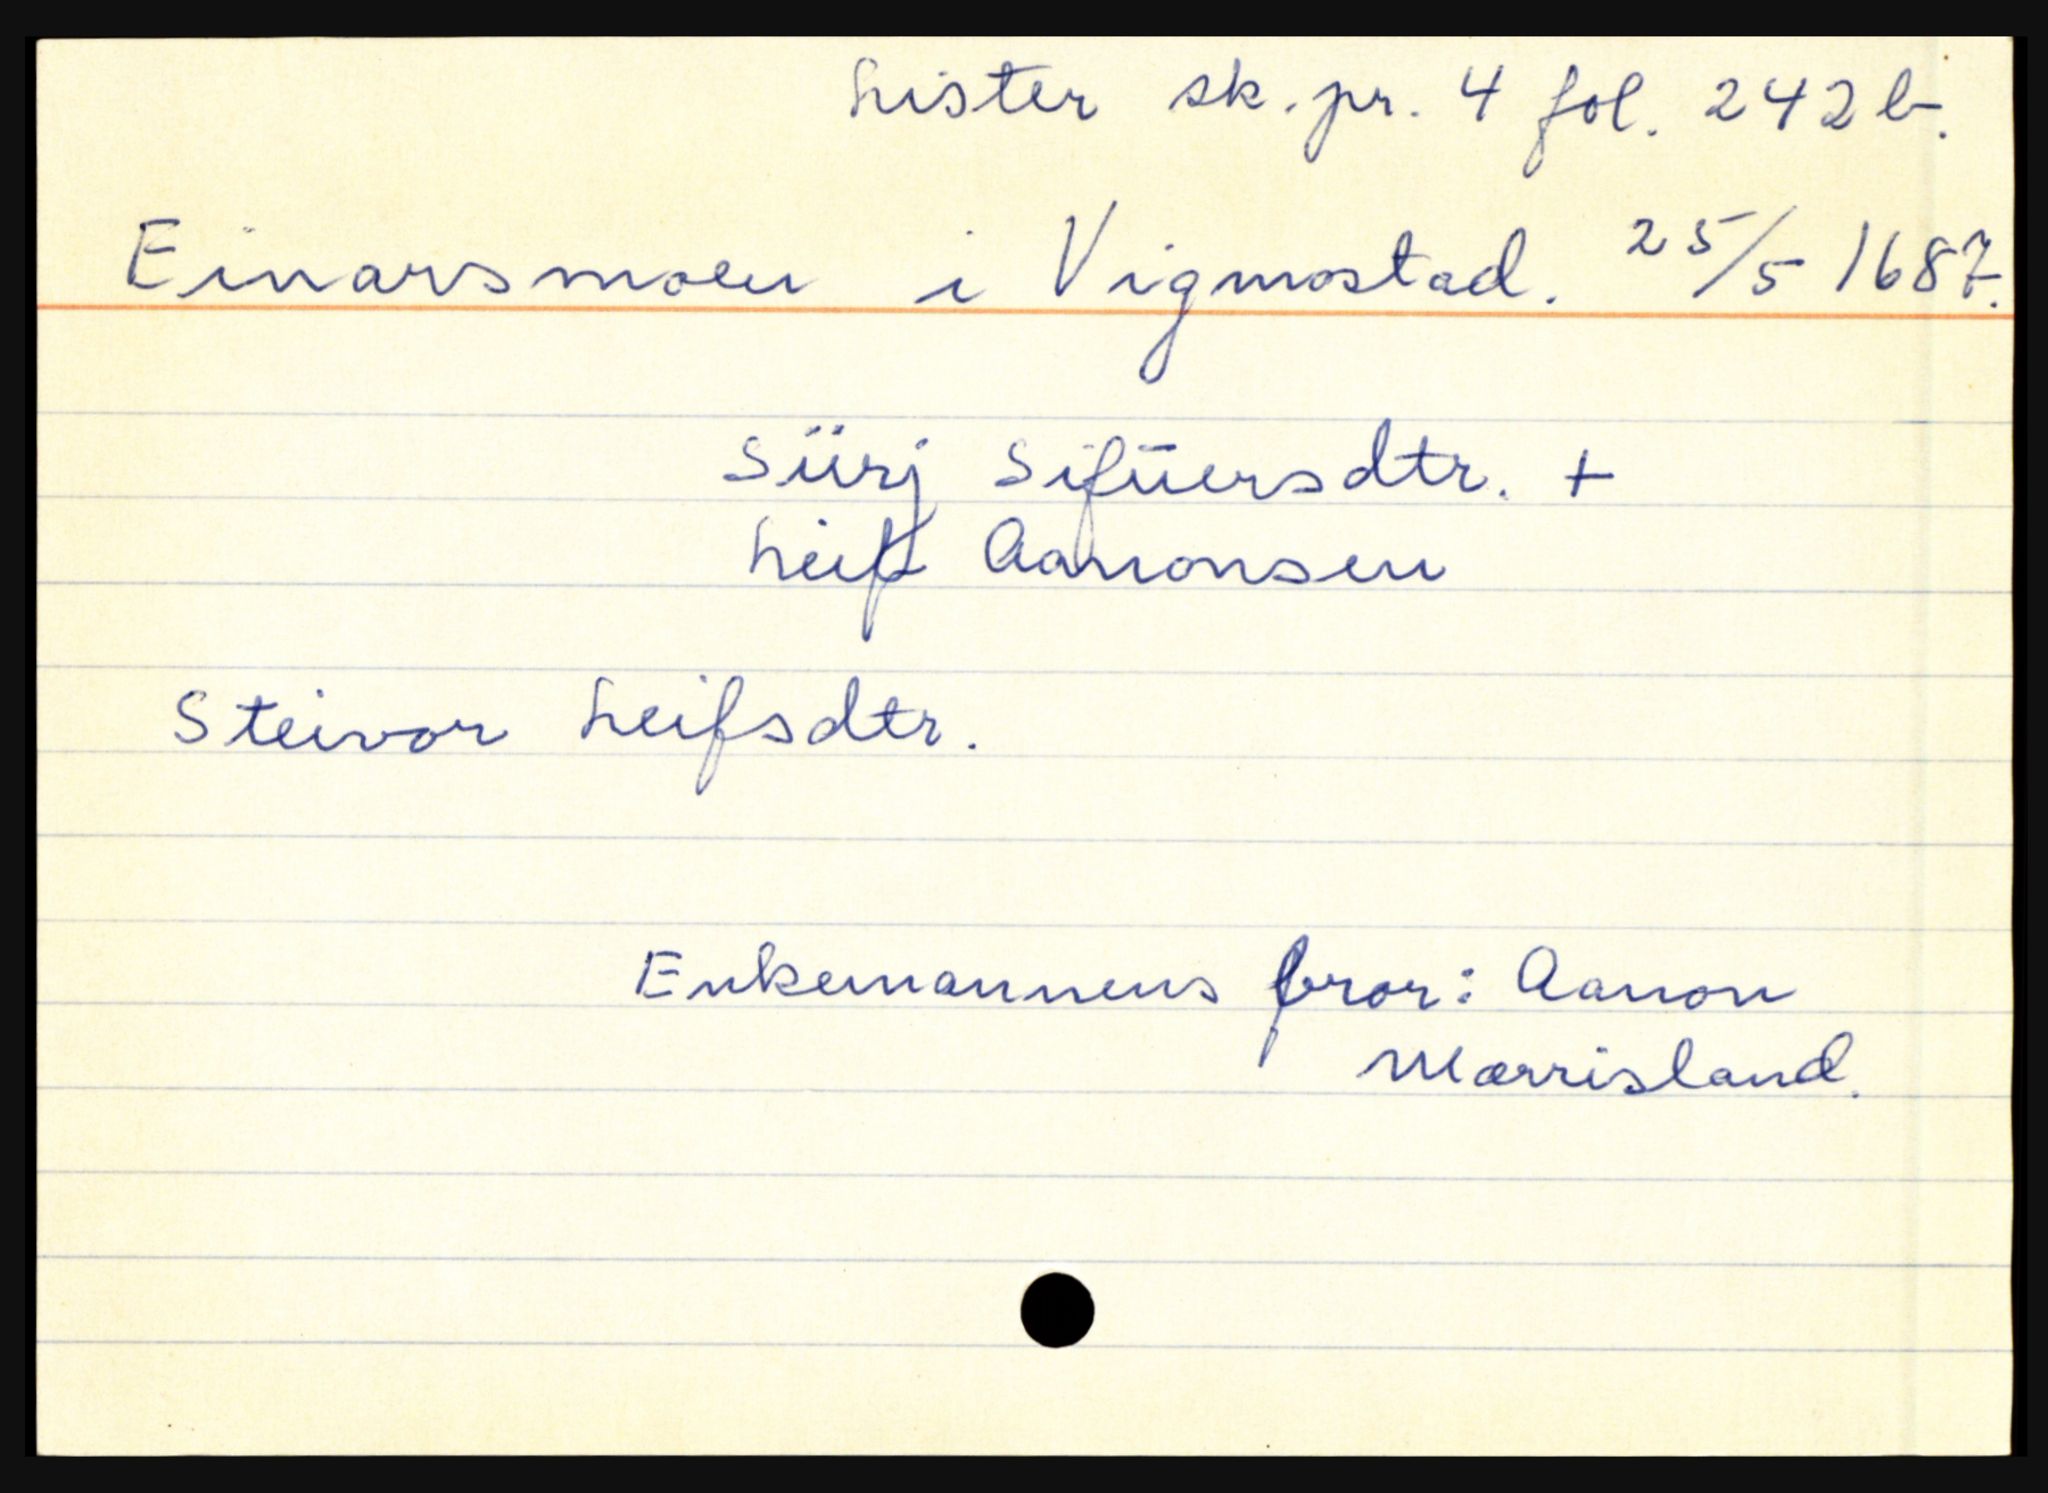 Lister sk. pr. 4 fol. 242 b.
Einarsmoen i Vigmostad. 25/5 1687.
Siirj Sifüersdtr. +
Leif Aanonsen
Steivor Leifsdtr.
Enkemannens bror: Aanon
Mærrisland.